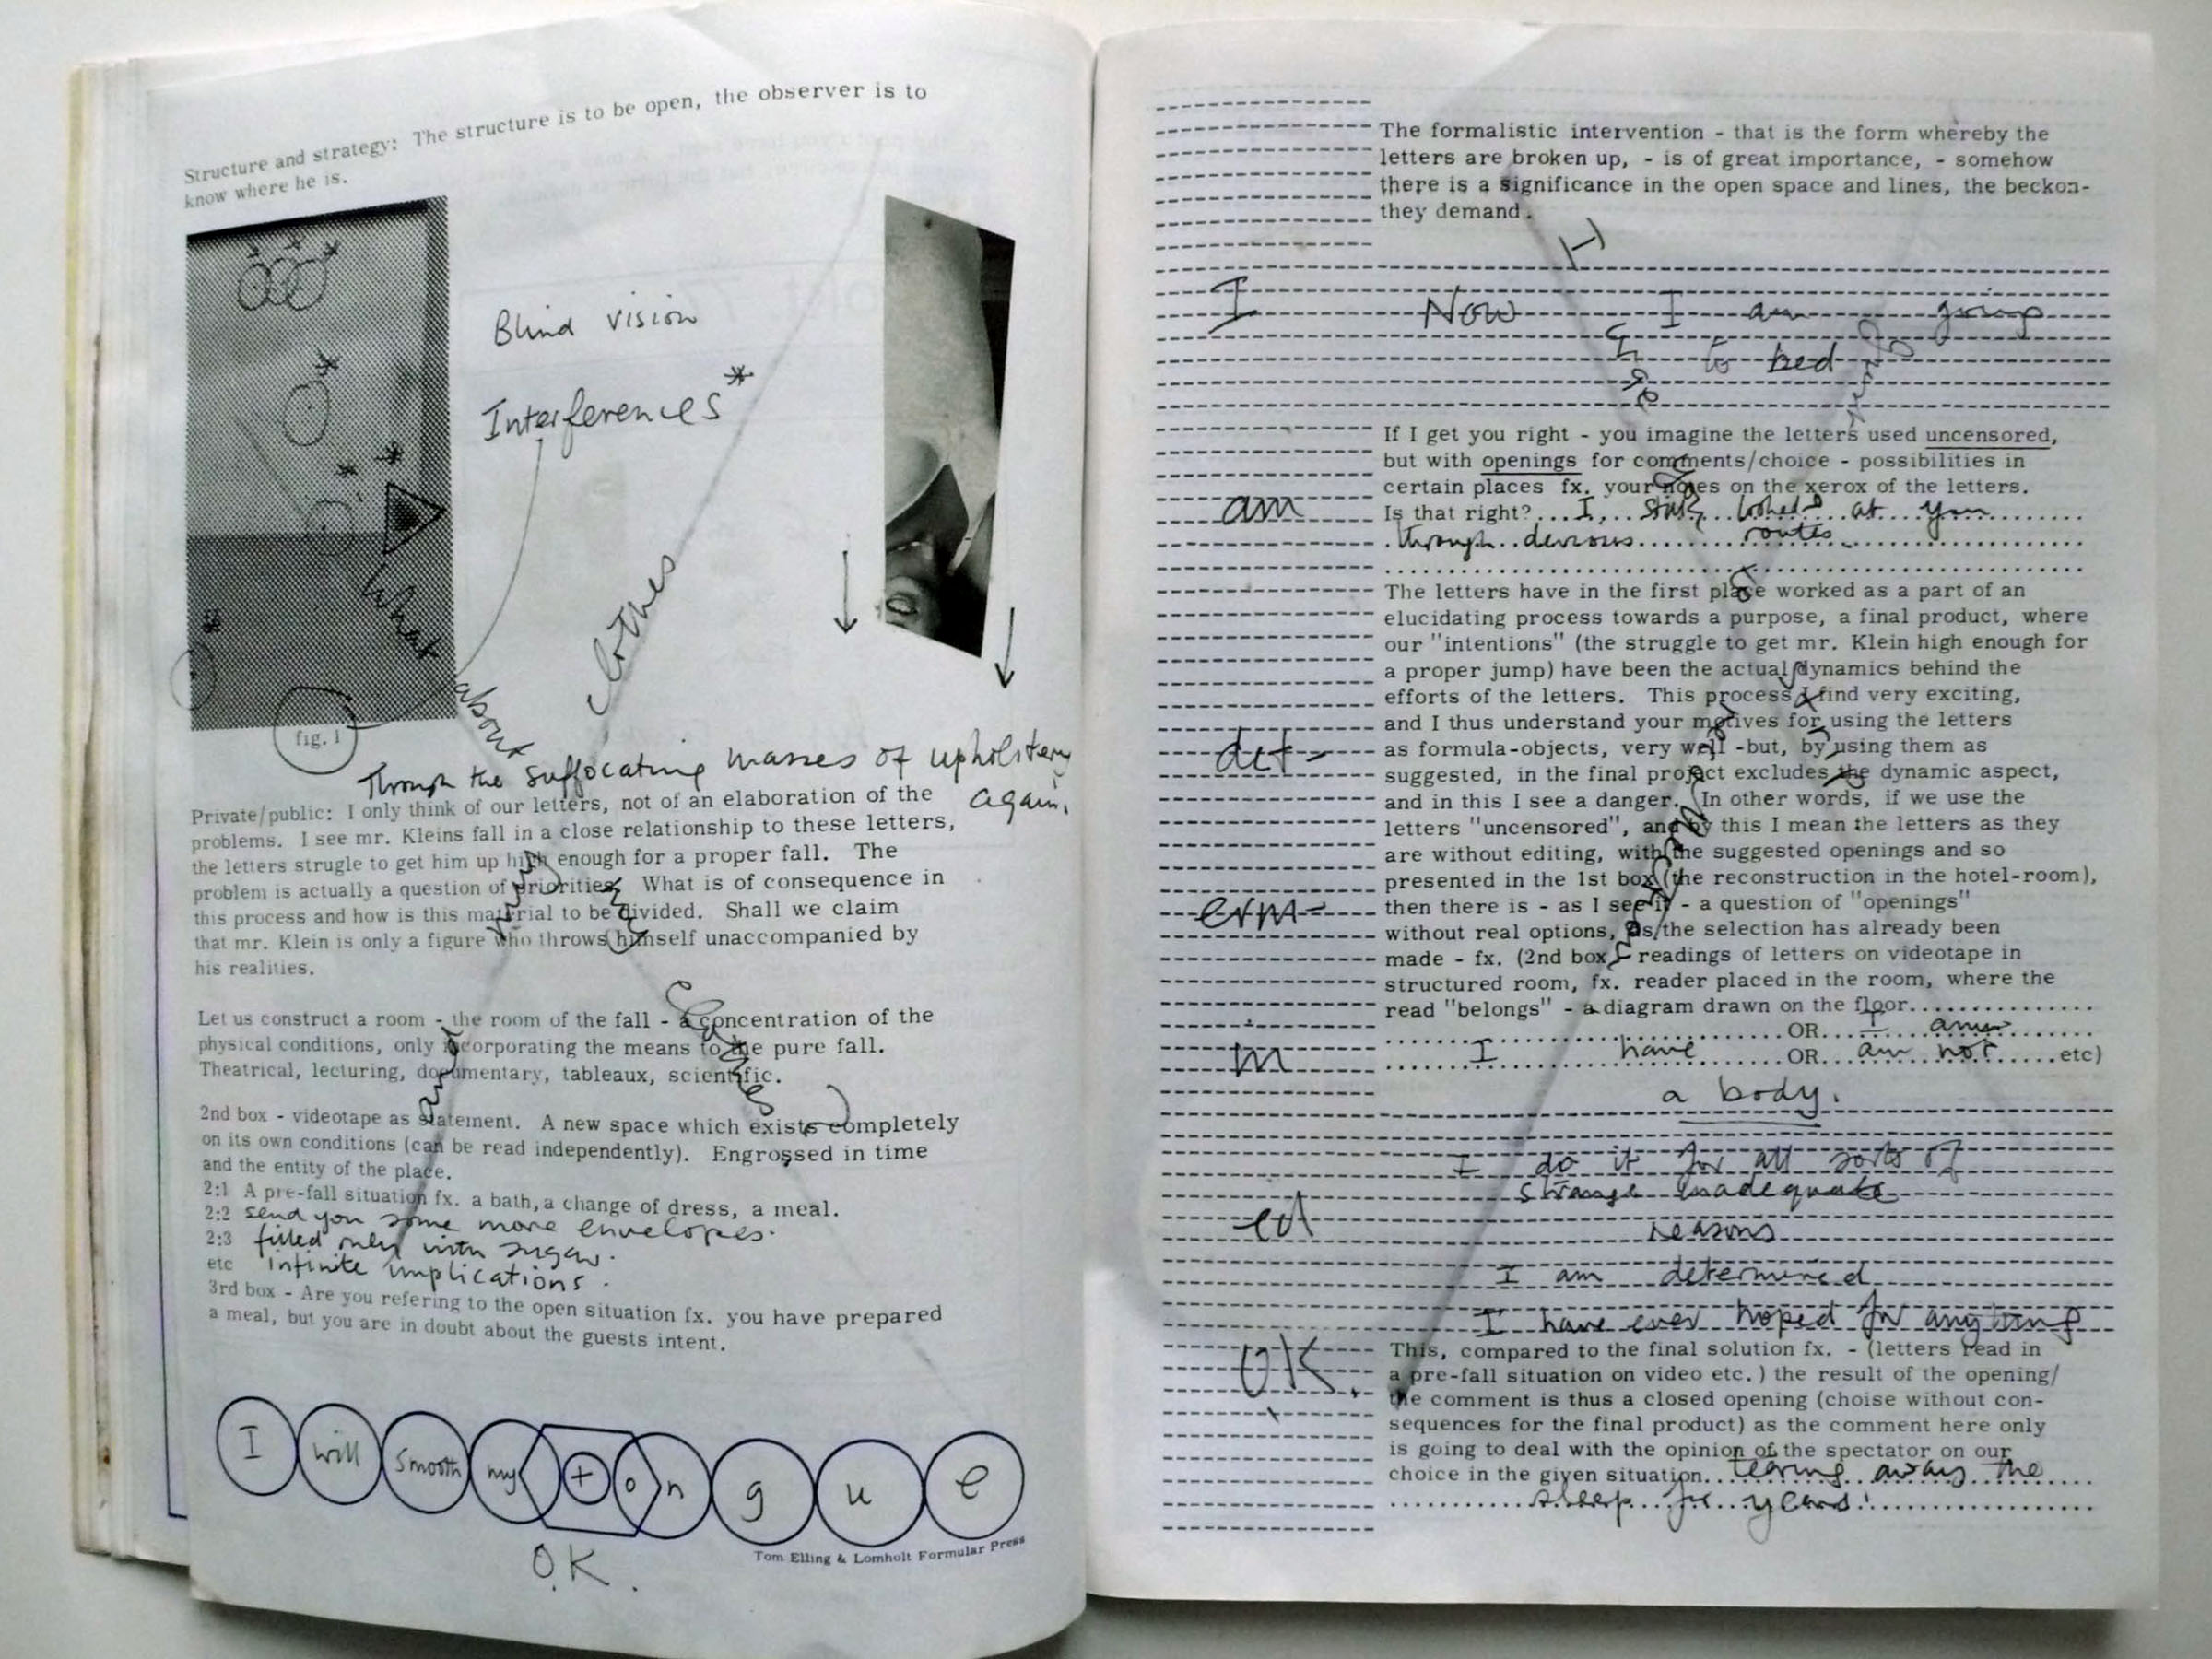 Structure and strategy: The structure is to be open, the observer is to
know where he is.
Blind vision
Interferences*
fig. 1
What
about
clothes
Through the suffocating masses of upholstery
again.
Private/public: I only think of our letters, not of an elaboration of the
problems. I see mr. Kleins fall in a close relationship to these letters,
the letters strugle to get him up high enough for a proper fall. The
problem is actually a question of priorities. What is of consequence in
this process and how is this material to be divided. Shall we claim
that mr. Klein is only a figure who throws himself unaccompanied by
his realities.
Let us construct a room - the room of the fall - a concentration of the
physical conditions, only incorporating the means to the pure fall.
Theatrical, lecturing, documentary, tableaux, scientific.
2nd box - videotape as statement. A new space which exists completely
on its own conditions (can be read independently). Engrossed in time
and the entity of the place.
2:1 A pre-fall situation fx. a bath, a change of dress, a meal.
2:2 send you some more envelopes.
2:3 filled only with sugar.
etc infinite implications.
3rd box - Are you refering to the open situation fx. you have prepared
a meal, but you are in doubt about the guests intent.
I will smooth my t o n g u e
O.K.
Tom Elling & Lomholt Formular Press
The formalistic intervention - that is the form whereby the
letters are broken up, - is of great importance, - somehow
there is a significance in the open space and lines, the beckon-
they demand.
I Now I am going
to bed
If I get you right - you imagine the letters used uncensored,
but with openings for comments/choice - possibilities in
certain places fx. your notes on the xerox of the letters.
am
Is that right?...I, looked at you
through devious routes
The letters have in the first place worked as a part of an
elucidating process towards a purpose, a final product, where
our "intentions" (the struggle to get mr. Klein high enough for
a proper jump) have been the actual dynamics behind the
efforts of the letters. This process I find very exciting,
and I thus understand your motives for using the letters
det-
as formula-objects, very well -but, by using them as
suggested, in the final project excludes the dynamic aspect,
and in this I see a danger. In other words, if we use the
letters "uncensored", and by this I mean the letters as they
are without editing, with the suggested openings and so
presented in the 1st box (the reconstruction in the hotel-room),
erm-
then there is - as I see it - a question of "openings"
without real options, as the selection has already been
made - fx. (2nd box - readings of letters on videotape in
structured room, fx. reader placed in the room, where the
read "belongs" - a diagram drawn on the floor..............
OR...I am
in
I have OR...am not.....etc)
a body.
I do it for all sorts of
strange inadequate
ed
reasons
I am determined
I have ever hoped for anything
OK.
This, compared to the final solution fx. - (letters read in
a pre-fall situation on video etc. ) the result of the opening/
the comment is thus a closed opening (choise without con-
sequences for the final product) as the comment here only
is going to deal with the opinion of the spectator on our
choice in the given situation...tearing away the
sleep for years!